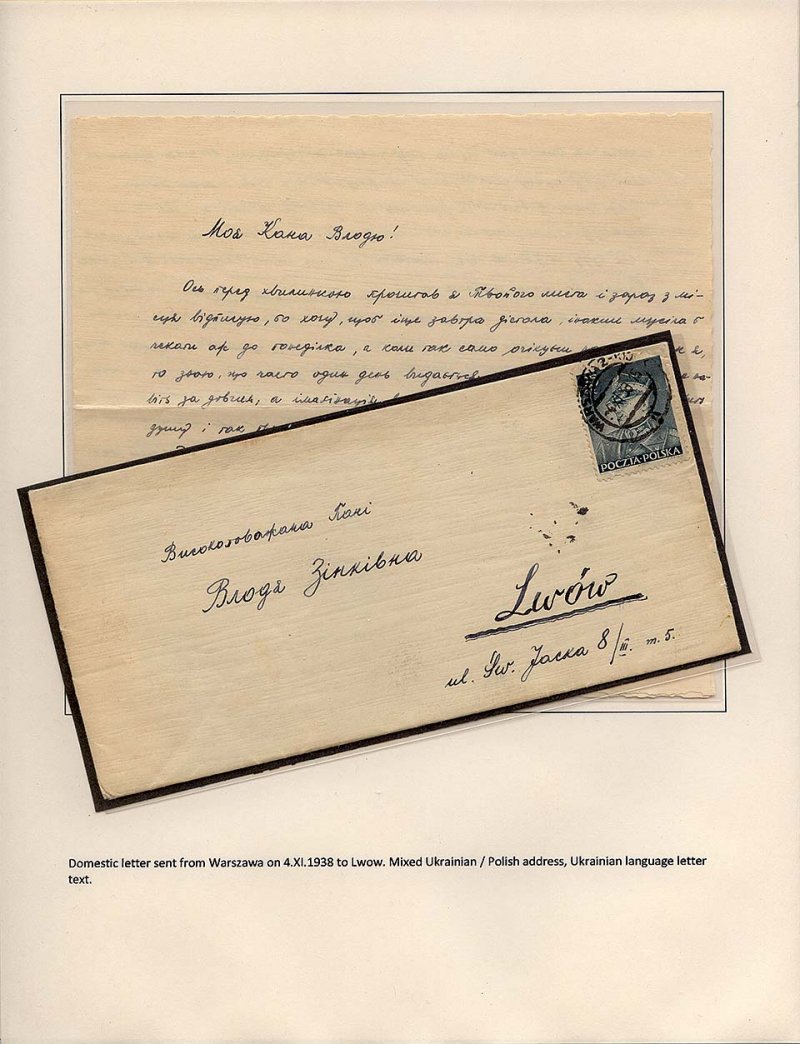 Моя Кана Влодю!
Ось перед хвилинкою прочитав я Твойого листа і зараз з мі-
сця відписую, бо хочу, щоб іще завтра дістала, інакше мусіла б
чекати аж до понеділка, а коли так само очікуєш
то знаю, що часто один день видається
віть за довгий, а
душу і так
WARSZAWA
POCZTA·POLSKA
Високоповажана Пані
Влодя Зінківна
Lwów
ul. Św. Jacka 8/III. m. 5.
Domestic letter sent from Warszawa on 4.XI.1938 to Lwow. Mixed Ukrainian / Polish address, Ukrainian language letter
text.